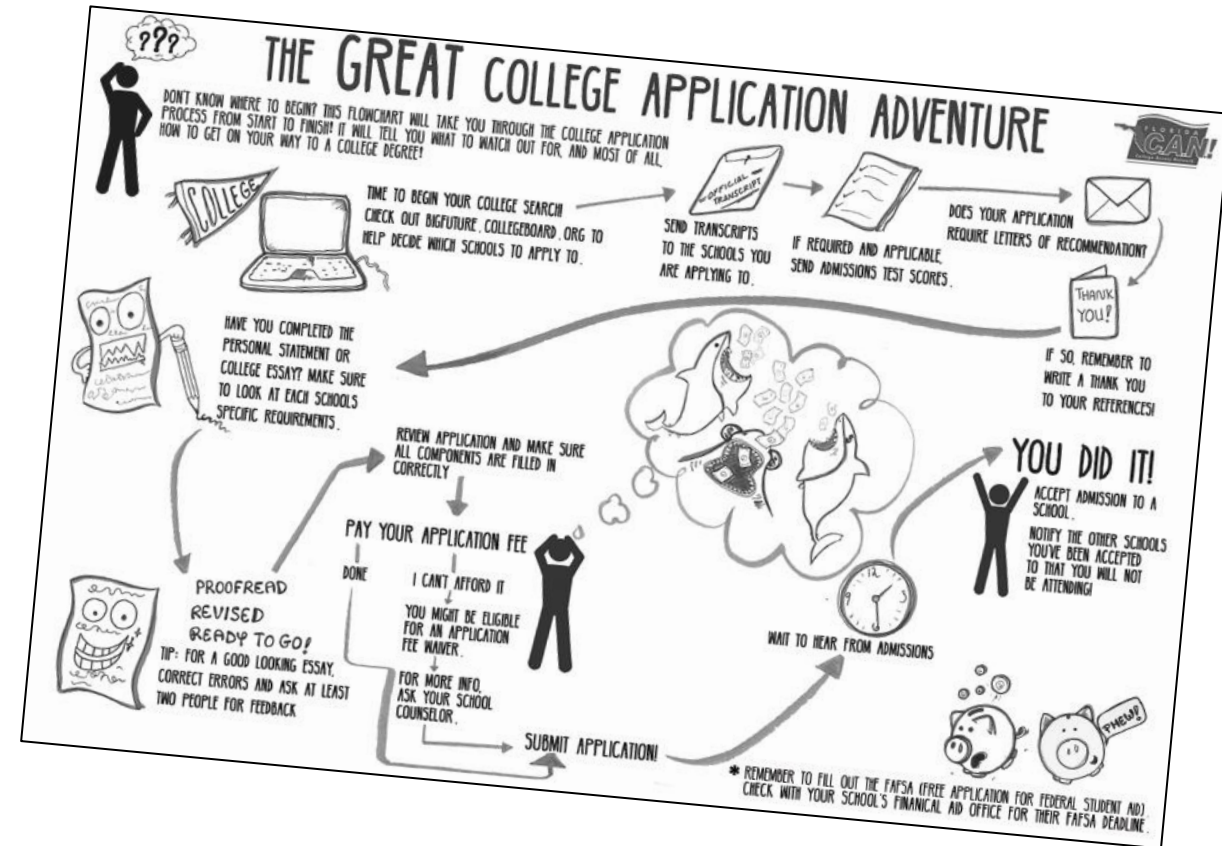 ???
THE GREAT COLLEGE APPLICATION ADVENTURE
DON'T KNOW WHERE TO BEGIN? THIS FLOWCHART WILL TAKE YOU THROUGH THE COLLEGE APPLICATION
PROCESS FROM START TO FINISH! IT WILL TELL YOU WHAT TO WATCH OUT FOR, AND MOST OF ALL,
HOW TO GET ON YOUR WAY TO A COLLEGE DEGREE!
FLORIDA
CAN!
COLLEGE
TIME TO BEGIN YOUR COLLEGE SEARCH!
CHECK OUT BIGFUTURE.COLLEGEBOARD.ORG TO
HELP DECIDE WHICH SCHOOLS TO APPLY TO.
OFFICIAL
TRANSCRIPT
SEND TRANSCRIPTS
TO THE SCHOOLS YOU
ARE APPLYING TO.
IF REQUIRED AND APPLICABLE,
SEND ADMISSIONS TEST SCORES.
DOES YOUR APPLICATION
REQUIRE LETTERS OF RECOMMENDATION?
THANK
YOU!
IF SO, REMEMBER TO
WRITE A THANK YOU
TO YOUR REFERENCES!
HAVE YOU COMPLETED THE
PERSONAL STATEMENT OR
COLLEGE ESSAY? MAKE SURE
TO LOOK AT EACH SCHOOLS
SPECIFIC REQUIREMENTS.
PROOFREAD
REVISED
READY TO GO!
TIP: FOR A GOOD LOOKING ESSAY,
CORRECT ERRORS AND ASK AT LEAST
TWO PEOPLE FOR FEEDBACK
REVIEW APPLICATION AND MAKE SURE
ALL COMPONENTS ARE FILLED IN
CORRECTLY
PAY YOUR APPLICATION FEE
DONE
I CAN'T AFFORD IT
YOU MIGHT BE ELIGIBLE
FOR AN APPLICATION
FEE WAIVER.
FOR MORE INFO,
ASK YOUR SCHOOL
COUNSELOR.
SUBMIT APPLICATION!
12
3
9
WAIT TO HEAR FROM ADMISSIONS
YOU DID IT!
ACCEPT ADMISSION TO A
SCHOOL.
NOTIFY THE OTHER SCHOOLS
YOU'VE BEEN ACCEPTED
TO THAT YOU WILL NOT
BE ATTENDING!
PHEW!
* REMEMBER TO FILL OUT THE FAFSA (FREE APPLICATION FOR FEDERAL STUDENT AID).
CHECK WITH YOUR SCHOOL'S FINANICAL AID OFFICE FOR THEIR FAFSA DEADLINE.